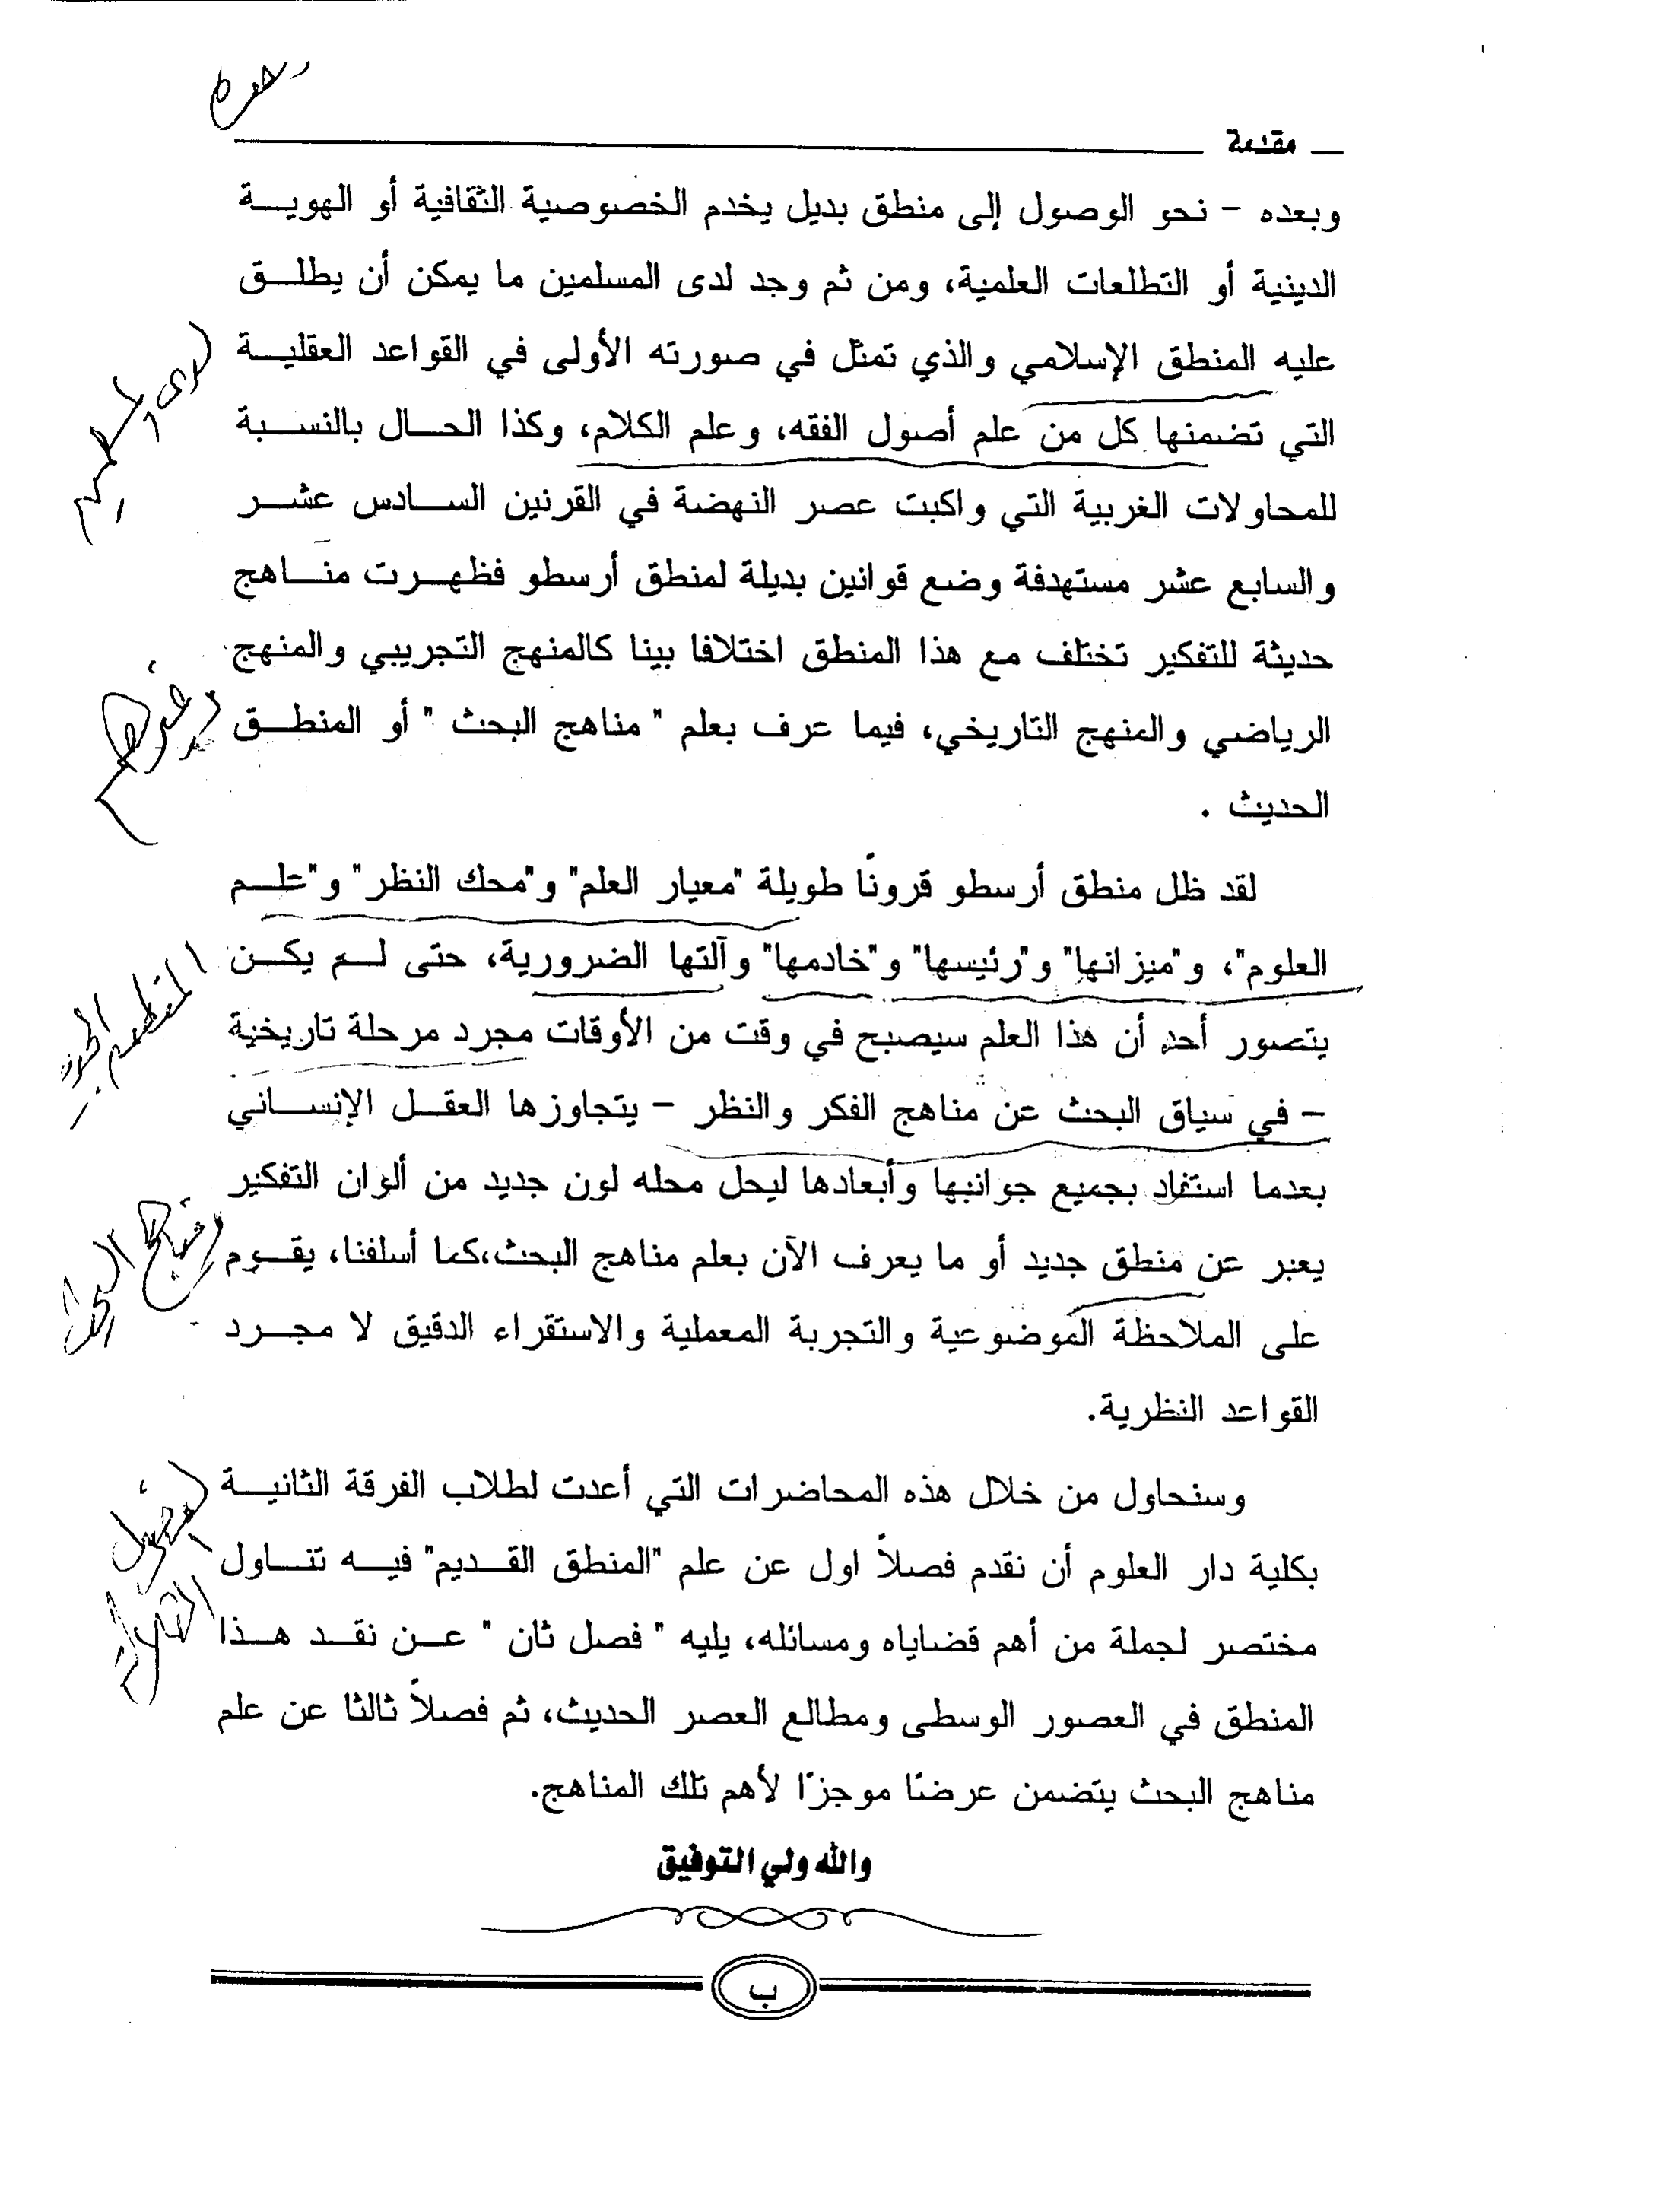 1
مقدمة
وبعده – نحو الوصول إلى منطق بديل يخدم الخصوصية الثقافية أو الهوية
الدينية أو التطلعات العلمية، ومن ثم وجد لدى المسلمين ما يمكن أن يطلق
عليه المنطق الإسلامي والذي تمثل في صورته الأولى في القواعد العقلية
التي تضمنها كل من علم أصول الفقه، وعلم الكلام، وكذا الحال بالنسبة
للمحاولات الغربية التي واكبت عصر النهضة في القرنين السادس عشر
والسابع عشر مستهدفة وضع قوانين بديلة لمنطق أرسطو فظهرت مناهج
حديثة للتفكير تختلف مع هذا المنطق اختلافا بينا كالمنهج التجريبي والمنهج
الرياضي والمنهج التاريخي، فيما عرف بعلم " مناهج البحث " أو المنطق
الحديث .
لقد ظل منطق أرسطو قرونًا طويلة "معيار العلم" و"محك النظر" و"علم
العلوم"، و"ميزانها" و"رئيسها" و"خادمها" وآلتها الضرورية، حتى لم يكن
يتصور أحد أن هذا العلم سيصبح في وقت من الأوقات مجرد مرحلة تاريخية
– في سياق البحث عن مناهج الفكر والنظر – يتجاوزها العقل الإنساني
بعدما استفاد بجميع جوانبها وأبعادها ليحل محله لون جديد من ألوان التفكير
يعبر عن منطق جديد أو ما يعرف الآن بعلم مناهج البحث،كما أسلفنا، يقوم
على الملاحظة الموضوعية والتجربة المعملية والاستقراء الدقيق لا مجرد
القواعد النظرية.
وسنحاول من خلال هذه المحاضرات التي أعدت لطلاب الفرقة الثانية
بكلية دار العلوم أن نقدم فصلاً اول عن علم "المنطق القديم" فيه تناول
مختصر لجملة من أهم قضاياه ومسائله، يليه " فصل ثان " عن نقد هذا
المنطق في العصور الوسطى ومطالع العصر الحديث، ثم فصلاً ثالثا عن علم
مناهج البحث يتضمن عرضًا موجزًا لأهم تلك المناهج.
والله ولي التوفيق
ب